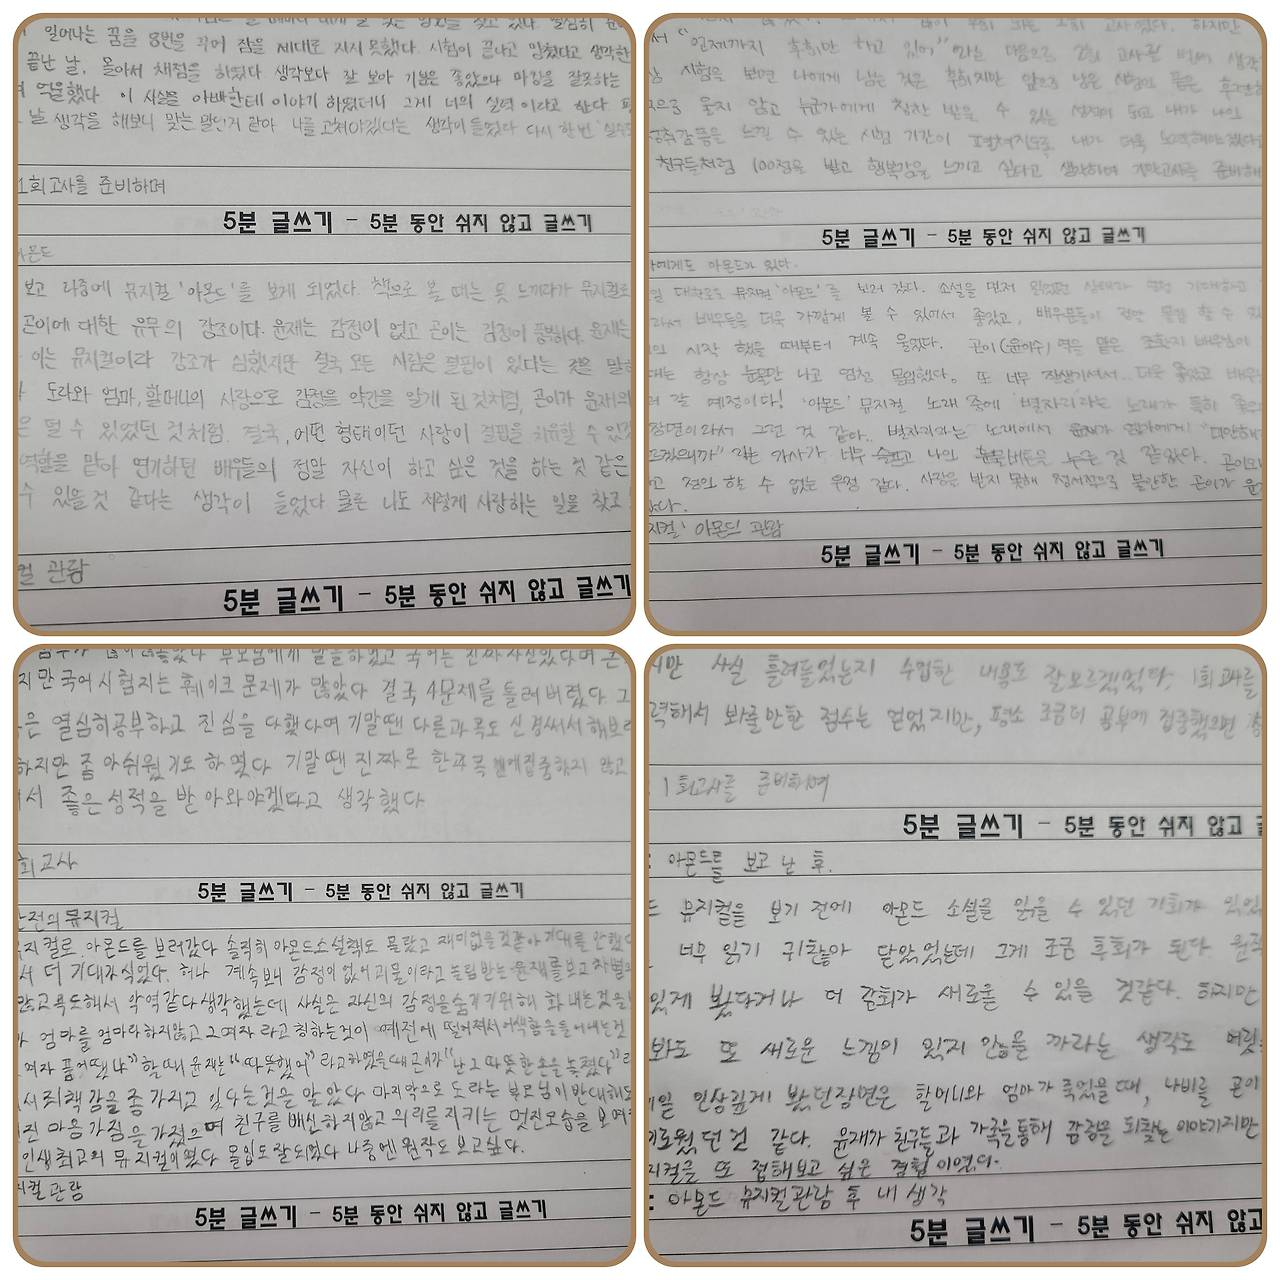 일어나는 꿈을 8번을 꾸어 잠을 제대로 자지 못했다. 시험이 끝나고 망쳤다고 생각한
끝난 날, 돌아서 채점을 하였다 생각보다 잘 보아 기분은 좋았으나 마킹을 잘못하는
억울했다 이 사실을 아빠한테 이야기 하였더니 그게 너의 실력이라고 한다
날 생각을 해보니 맞는 말인거 같아 나를 고쳐야겠다는 생각이 들었다 다시 한 번
1회고사를 준비하며
5분 글쓰기 - 5분 동안 쉬지 않고 글쓰기
아몬드
보고 나중에 뮤지컬 '아몬드'를 보게 되었다. 책으로 볼 때는 못 느끼다가 뮤지컬로
곤이에 대한 유무의 강조이다. 윤재는 감정이 없고 곤이는 감정이 풍부하다. 윤재는
이는 뮤지컬이라 강조가 심했지만 결국 모든 사람은 결핍이 있다는 것을 말하
도라와 엄마, 할머니의 사랑으로 감정을 약간을 알게 된 것처럼, 곤이가 윤재의
은 덜 수 있었던 것처럼. 결국, 어떤 형태이던 사랑이 결핍을 치유할 수 있
역할을 맡아 연기하던 배우들의 정말 자신이 하고 싶은 것을 하는 것 같은
수 있을 것 같다는 생각이 들었다 물론 나도 저렇게 사랑하는 일을 찾고
컬 관람
5분 글쓰기 - 5분 동안 쉬지 않고 글쓰기
서 "언제까지 후회만 하고 있어" 라는 다음으로 2회 고사를
시험을 보면 나에게 남는 것은 후회지만 앞으로 남은 시험의
으로 울지 않고 누군가에게 칭찬 받을 수 있는 성적이 되고 내가 나의
성취감등을 느낄 수 있는 시험 기간이 펼쳐지도록 내가 더욱 노력해야겠다
친구들처럼 100점을 받고 행복감을 느끼고 싶다고 생각하며 기말고사를 준비해
5분 글쓰기 - 5분 동안 쉬지 않고 글쓰기
에게도 아몬드가 있다.
일 대학로로 뮤지컬 '아몬드'를 보러 갔다. 소설을 먼저 읽었던 상태라
라서 배우들을 더욱 가깝게 볼 수 있어서 좋았고, 배우분들이 정말 몰입 할 수
의 시작 했을 때부터 계속 울었다. 곤이(윤이수) 역을 맡은 조환지 배우님이
때는 항상 눈물만 나고 엄청 몰입했다. 또 너무 잘생기셔서.. 더욱 좋았고
러 갈 예정이다! '아몬드' 뮤지컬 노래 중에 '별자리'라는 노래가 특히
장면이와서 그런 것 같아.. 별자리라는 노래에서 윤재가 엄마에게 "미안해
가사가 너무 슬프고 나의 눈물버튼을 누르는 것 같았다. 곤이와
고 정의 할 수 없는 우정 같다. 사랑은 받지 못해 정서적으로 불안한 곤이가
지컬' 아몬드 관람
5분 글쓰기 - 5분 동안 쉬지 않고 글쓰기
부모님에게 말을하였고 국어는 진짜 자신있다며
지만 국어시험지는 훼이크 문제가 많았다 결국 4문제를 틀려버렸다. 그
은 열심히공부하고 진심을 다했다며 기말땐 다른과목도 신경써서 해보라
하지만 좀 아쉬웠기도 하였다 기말땐 진짜로 한과목 에집중하지 않고
서 좋은성적을 받아와야겠다고 생각했다
회고사
5분 글쓰기 - 5분 동안 쉬지 않고 글쓰기
반전의 뮤지컬
뮤지컬로 아몬드를 보러갔다 솔직히 아몬드소설책도 몰랐고 재미없을것같아 기대를 안했다
서 더 기대가식었다. 허나 계속보니 감정이 없어 괴물이라고 놀림받는 윤재를보고
많고 욕도해서 악역같다 생각했는데 사실은 자신의 감정을숨기기위해 화내는것을
엄마를 엄마라하지않고 그여자 라고 칭하는것이 예전에 떨어져서어색함을들어내는것
할때 윤재는 "따뜻했어" 라고하였을때 곤이가 "난 그 따뜻한손을 놓쳤다"
서죄책감을 좀 가지고 있다는것을 알았다 마지막으로 도라는 부모님이반대해도
진 마음가짐을가졌으며 친구를배신하지않고 의리를 지키는 멋진모습을 보여
인생최고의 뮤지컬이였다 몰입도잘되었다 나중엔 원작도 보고싶다.
지컬관람
5분 글쓰기 - 5분 동안 쉬지 않고 글쓰기
지만 사실 흘려들었는지 수업한 내용도 잘모르겠었다. 1회고사를
력해서 봐줄만한 점수는 얻었지만, 평소 조금더 공부에 집중했으면
: 1회고사를 준비하며
5분 글쓰기 - 5분 동안 쉬지 않고 글
: 아몬드를 보고 난 후.
드 뮤지컬을 보기 전에 아몬드 소설을 읽을 수 있던 기회가 있었
너무 읽기 귀찮아 닫았었는데 그게 조금 후회가 된다. 원작
있게 봤다거나 더 감회가 새로울 수 있을 것같다. 하지만
봐도 또 새로운 느낌이 있지 않을 까라는 생각도
제일 인상깊게 봤던장면은 할머니와 엄마가 죽었을때, 나비를 곤이
괴로웠던것 같다. 윤재가 친구들과 가족을통해 감정을 되찾는이야기지만
지컬을 또 접해보고 싶은 경험이였다.
: 아몬드 뮤지컬관람 후 내 생각
5분 글쓰기 - 5분 동안 쉬지 않고 글쓰